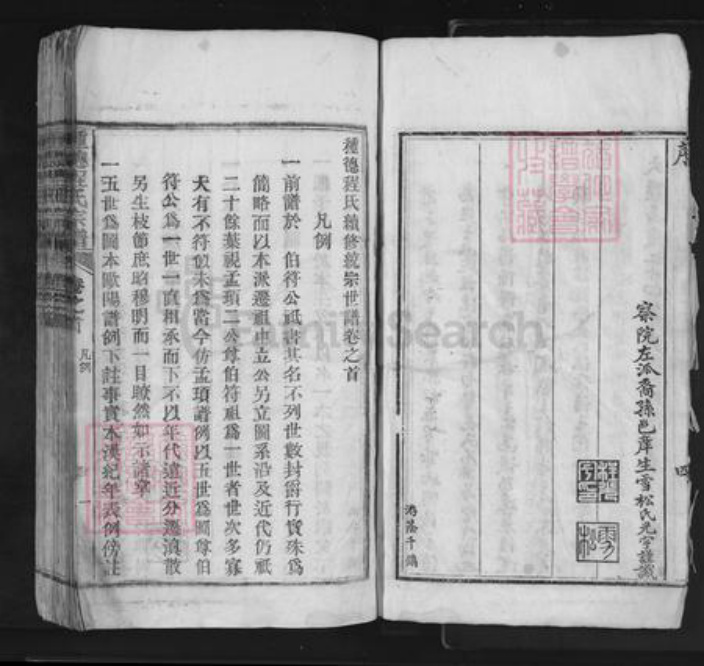 序
察院左派裔孫邑庠生雪松氏元字謹識
四
種德程氏續修統宗世譜卷之首
凡例
一前譜於 伯符公祇書其名不列世數封爵行實殊爲
簡略而以本派遷祖由立公另立圖系沿及近代仍祇
二十餘葉視孟瓊二公尊伯符祖爲一世者世次多寡
大有不符似未爲當今仿孟瓊諸例以五世爲圖尊伯
符公爲一世一直相承而下不以年代遠近分遷徙散
另生枝節庶昭穆明而一目瞭然如示諸掌
一五世爲圖本歐陽譜例下註事實本漢紀年表例傍註
程氏宗譜
卷之首
凡例
一
FamilySearch